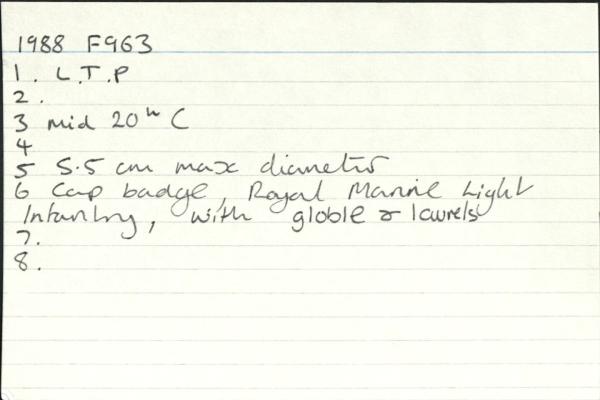 1988 F963
1. L.T.P
2.
3 mid 20th C
4
5 5.5 cm max diameter
6 Cap badge, Royal Marine Light
Infantry, with globle & laurels
7.
8.